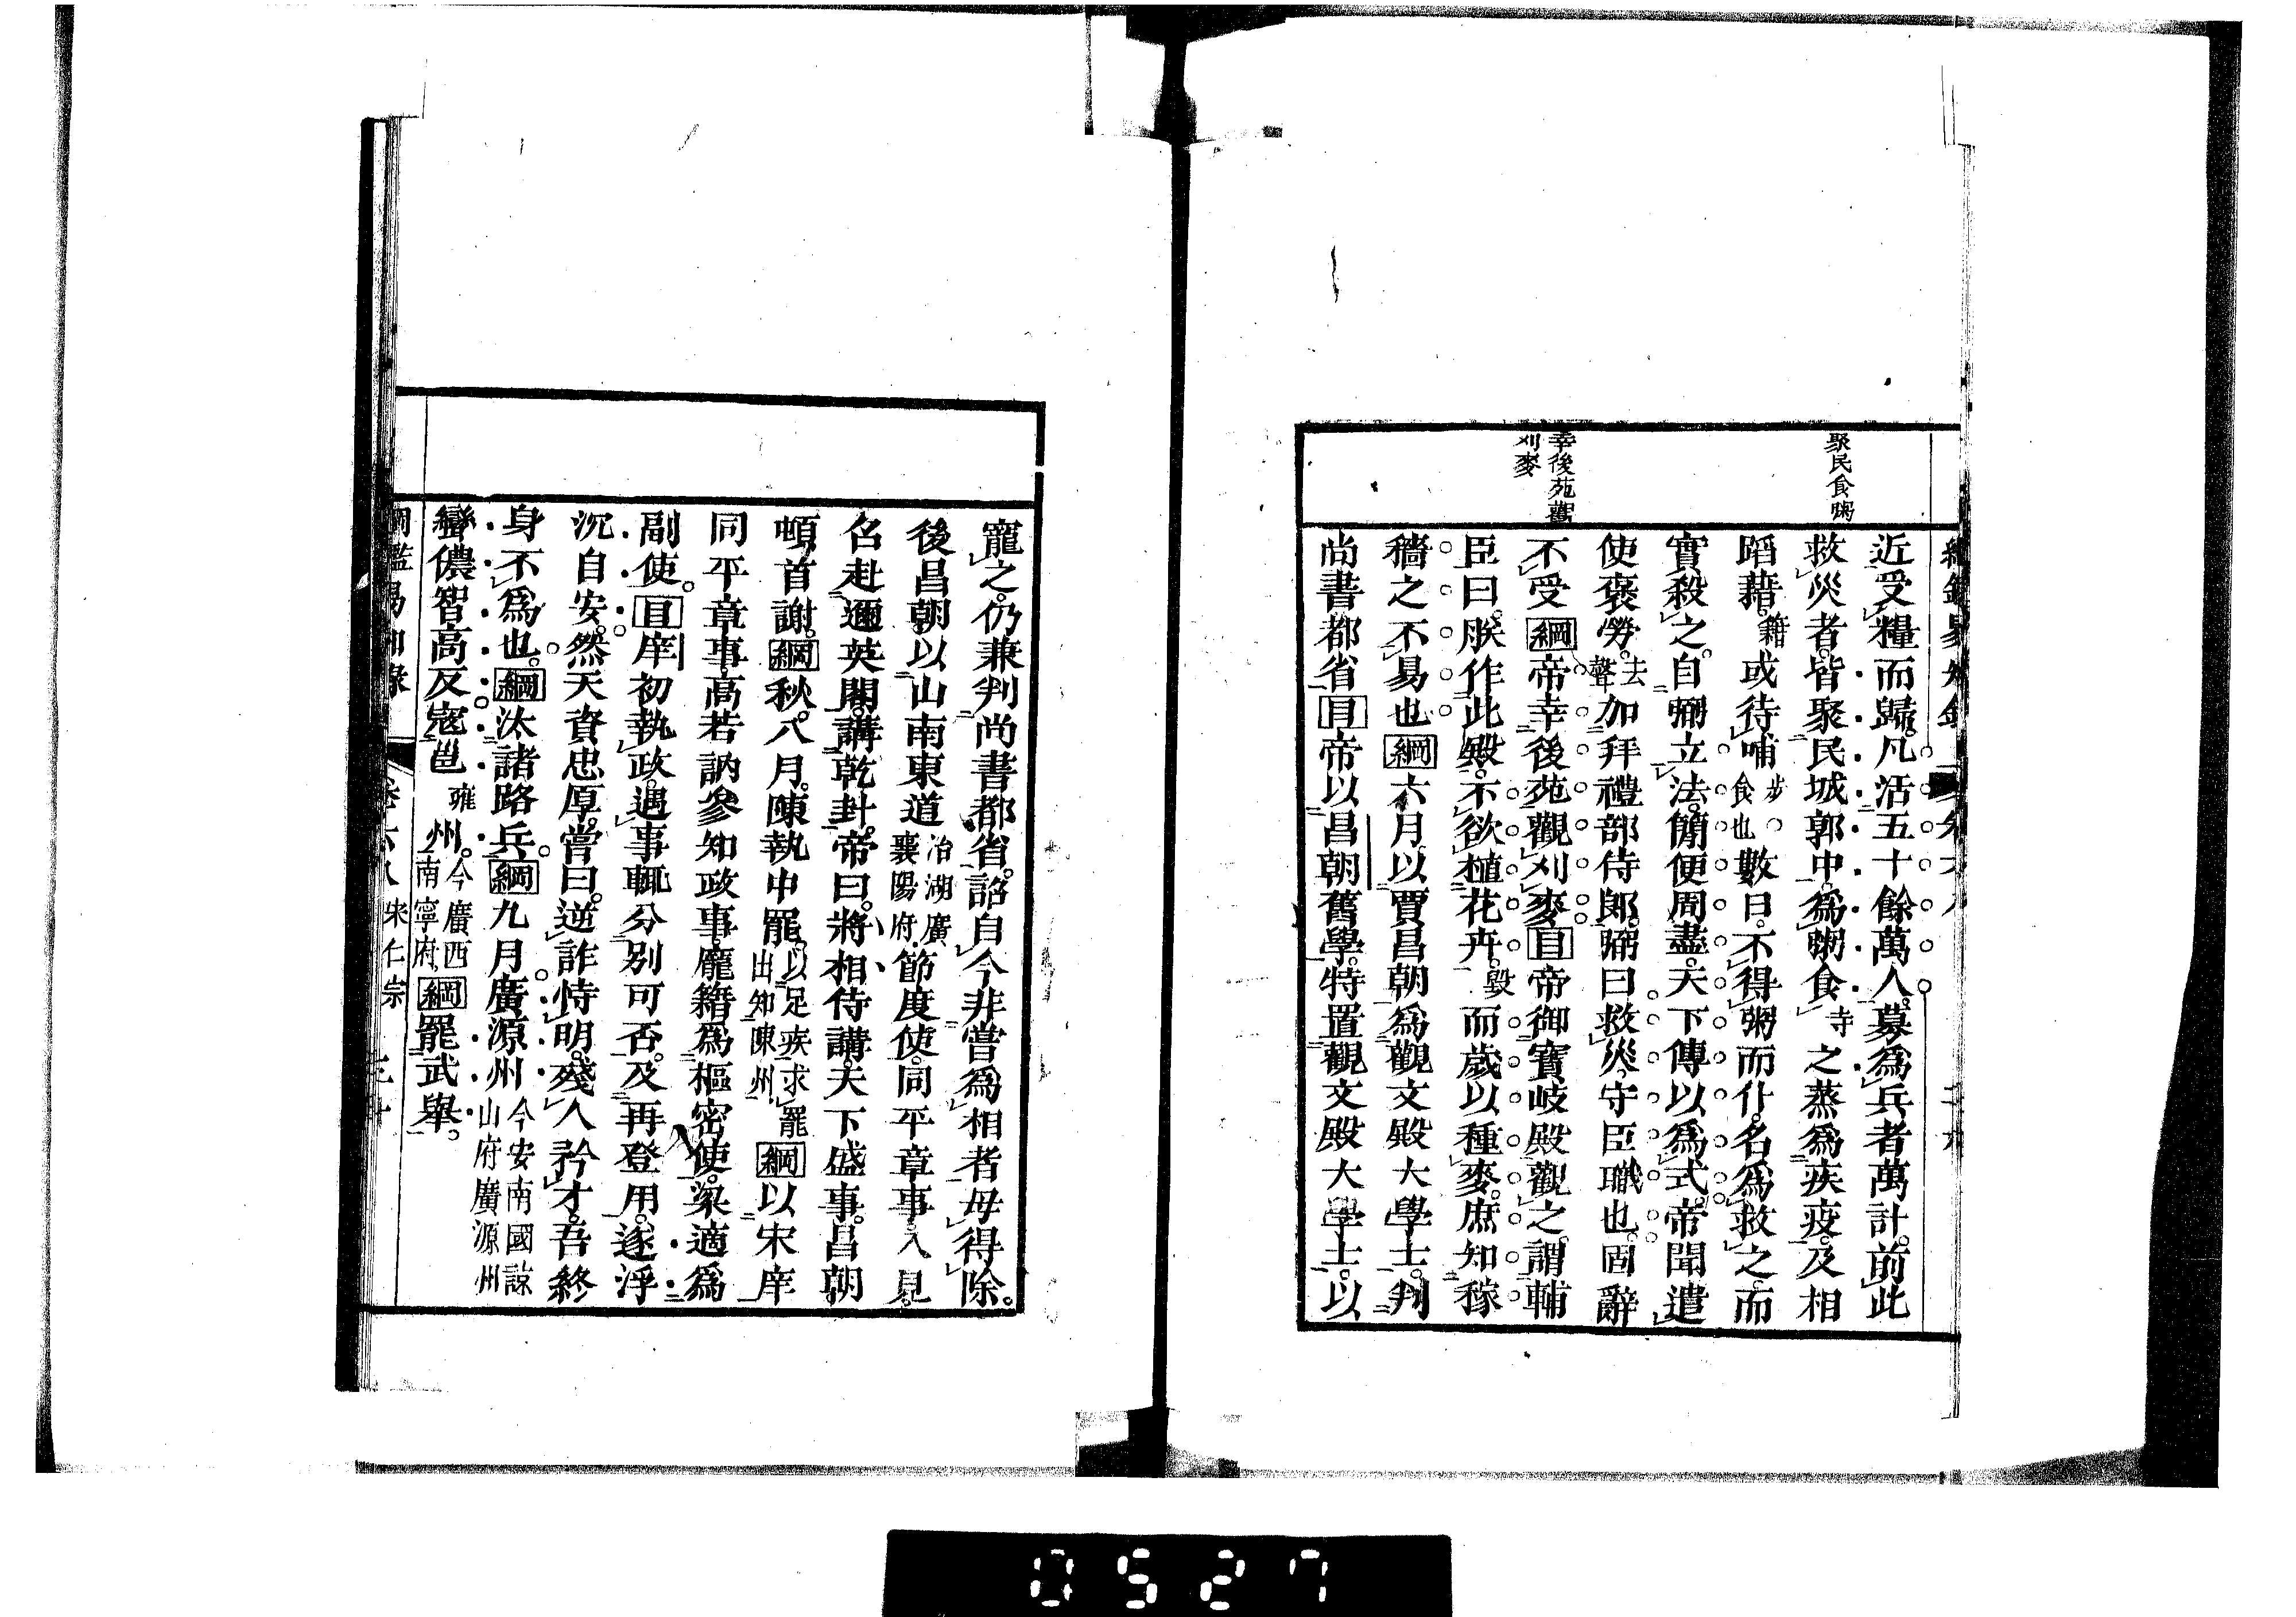 聚民食粥
幸後苑觀
刈麥
近受糧而歸。凡活五十餘萬人。募爲兵者萬計。前此
救災者。皆聚民城郭中。爲粥食寺之蒸爲疾疫。及相
蹈藉。籍或待哺步食也數日。不得粥而仆。名爲救之。而
實殺之。自弼立法。簡便周盡。天下傳以爲式。帝聞遣
使褒勞。去聲加拜禮部侍郎。弼曰救災守臣職也。固辭
不受綱帝幸後苑觀刈麥目帝御寳岐殿觀之。謂輔
臣曰。朕作此殿。不欲植花卉。毀而歲以種麥。庶知稼
穡之不易也綱六月以賈昌朝爲觀文殿大學士。判
尚書都省目帝以昌朝舊學。特置觀文殿大學士。以
寵之。仍兼判尚書都省。詔自今非嘗爲相者毋得除。
後昌朝以山南東道治湖廣襄陽府節度使。同平章事。入見。
召赴邇英閣。講乾卦。帝曰。將相侍講。天下盛事。昌朝
頓首謝。綱秋。八月。陳執中罷。以足疾求罷出知陳州綱以宋庠
同平章事。高若訥參知政事。龐籍爲樞密使。梁適爲
副使。目庠初執政。遇事輒分別可否。及再登用。遂浮
沉自安。然天資忠厚。嘗曰。逆詐恃明。殘人矜才。吾終
身不爲也。綱汰諸路兵。綱九月廣源州今安南國諒山府廣源州
蠻儂智高反寇邕雍州。今廣西南寧府。綱罷武舉。
宋仁宗
0527